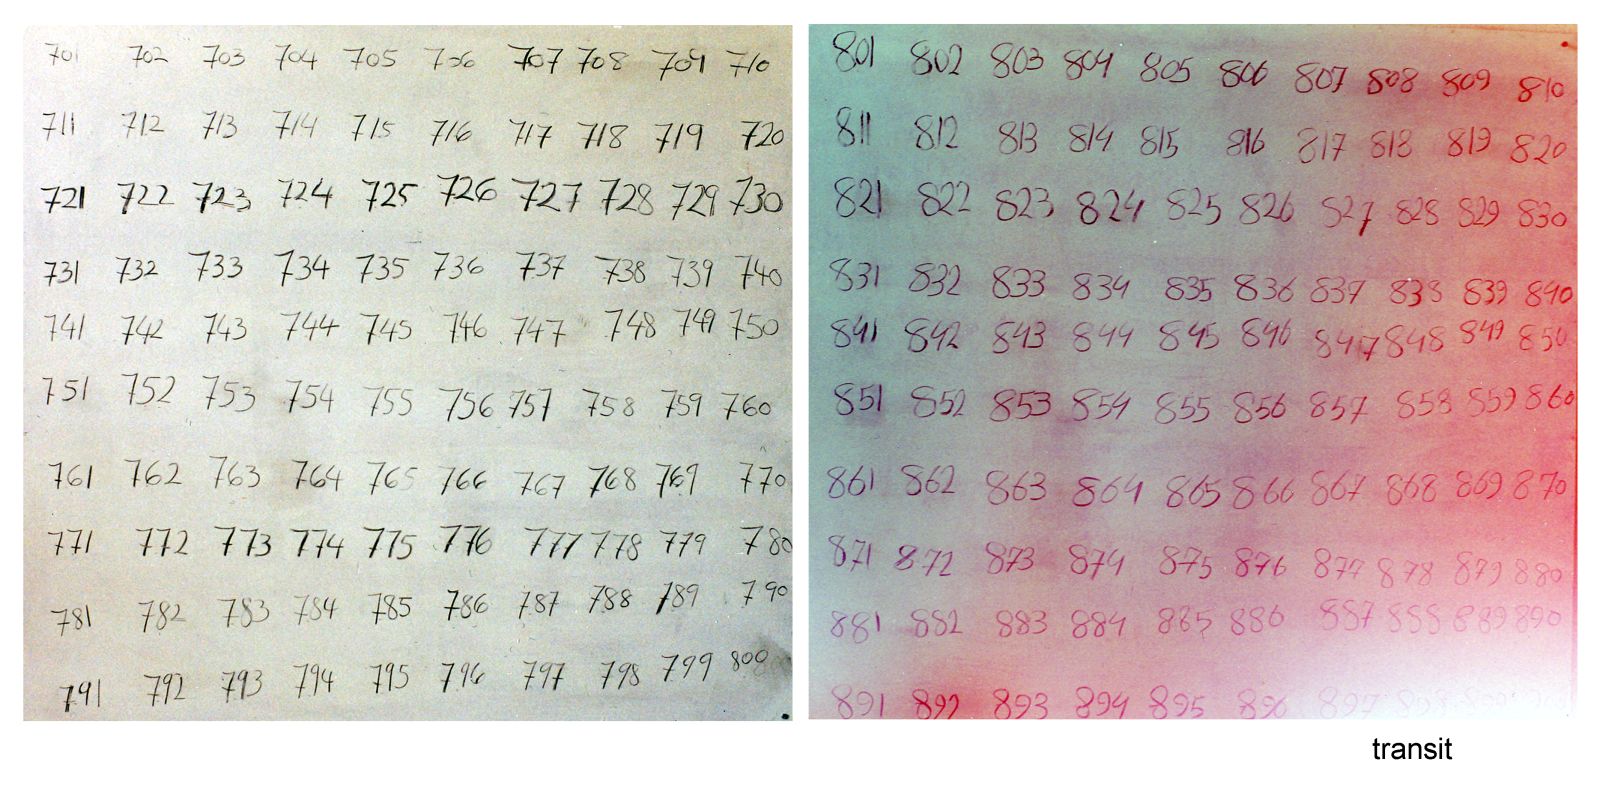 701 702 703 704 705 706 707 708 709 710
711 712 713 714 715 716 717 718 719 720
721 722 723 724 725 726 727 728 729 730
731 732 733 734 735 736 737 738 739 740
741 742 743 744 745 746 747 748 749 750
751 752 753 754 755 756 757 758 759 760
761 762 763 764 765 766 767 768 769 770
771 772 773 774 775 776 777 778 779 780
781 782 783 784 785 786 787 788 789 790
791 792 793 794 795 796 797 798 799 800
801 802 803 804 805 806 807 808 809 810
811 812 813 814 815 816 817 818 819 820
821 822 823 824 825 826 827 828 829 830
831 832 833 834 835 836 837 838 839 840
841 842 843 844 845 846 847 848 849 850
851 852 853 854 855 856 857 858 859 860
861 862 863 864 865 866 867 868 869 870
871 872 873 874 875 876 877 878 879 880
881 882 883 884 885 886 887 888 889 890
891 892 893 894 895 896 897 898
transit